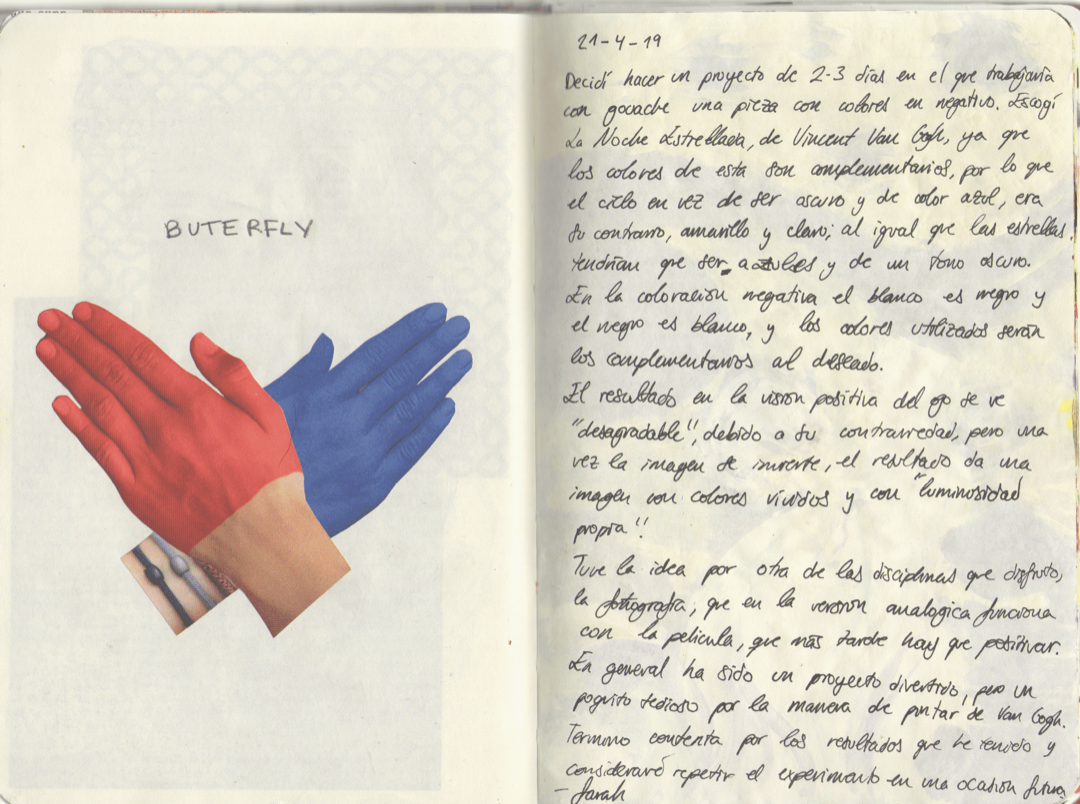 BUTERFLY
21-4-19
Decidí hacer un proyecto de 2-3 días en el que trabajaría
con gouache una pieza con colores en negativo. Escogí
La Noche Estrellada, de Vincent Van Gogh, ya que
los colores de esta son complementarios, por lo que
el cielo en vez de ser oscuro y de color azul, era
su contrario, amarillo y claro; al igual que las estrellas
tendrían que ser azules y de un tono oscuro.
En la coloración negativa el blanco es negro y
el negro es blanco, y los colores utilizados serán
los complementarios al deseado.
El resultado en la visión positiva del ojo se ve
"desagradable", debido a su contrariedad, pero una
vez la imagen se invierte, el resultado da una
imagen con colores vividos y con "luminosidad
propia".
Tuve la idea por otra de las disciplinas que disfruto,
la fotografía, que en la versión analogica funciona
con la pelicula, que más tarde hay que positivar.
En general ha sido un proyecto divertido, pero un
poquito tedioso por la manera de pintar de Van Gogh.
Termino contenta por los resultados que he tenido y
consideraré repetir el experimento en una ocasión futura
- Sarah